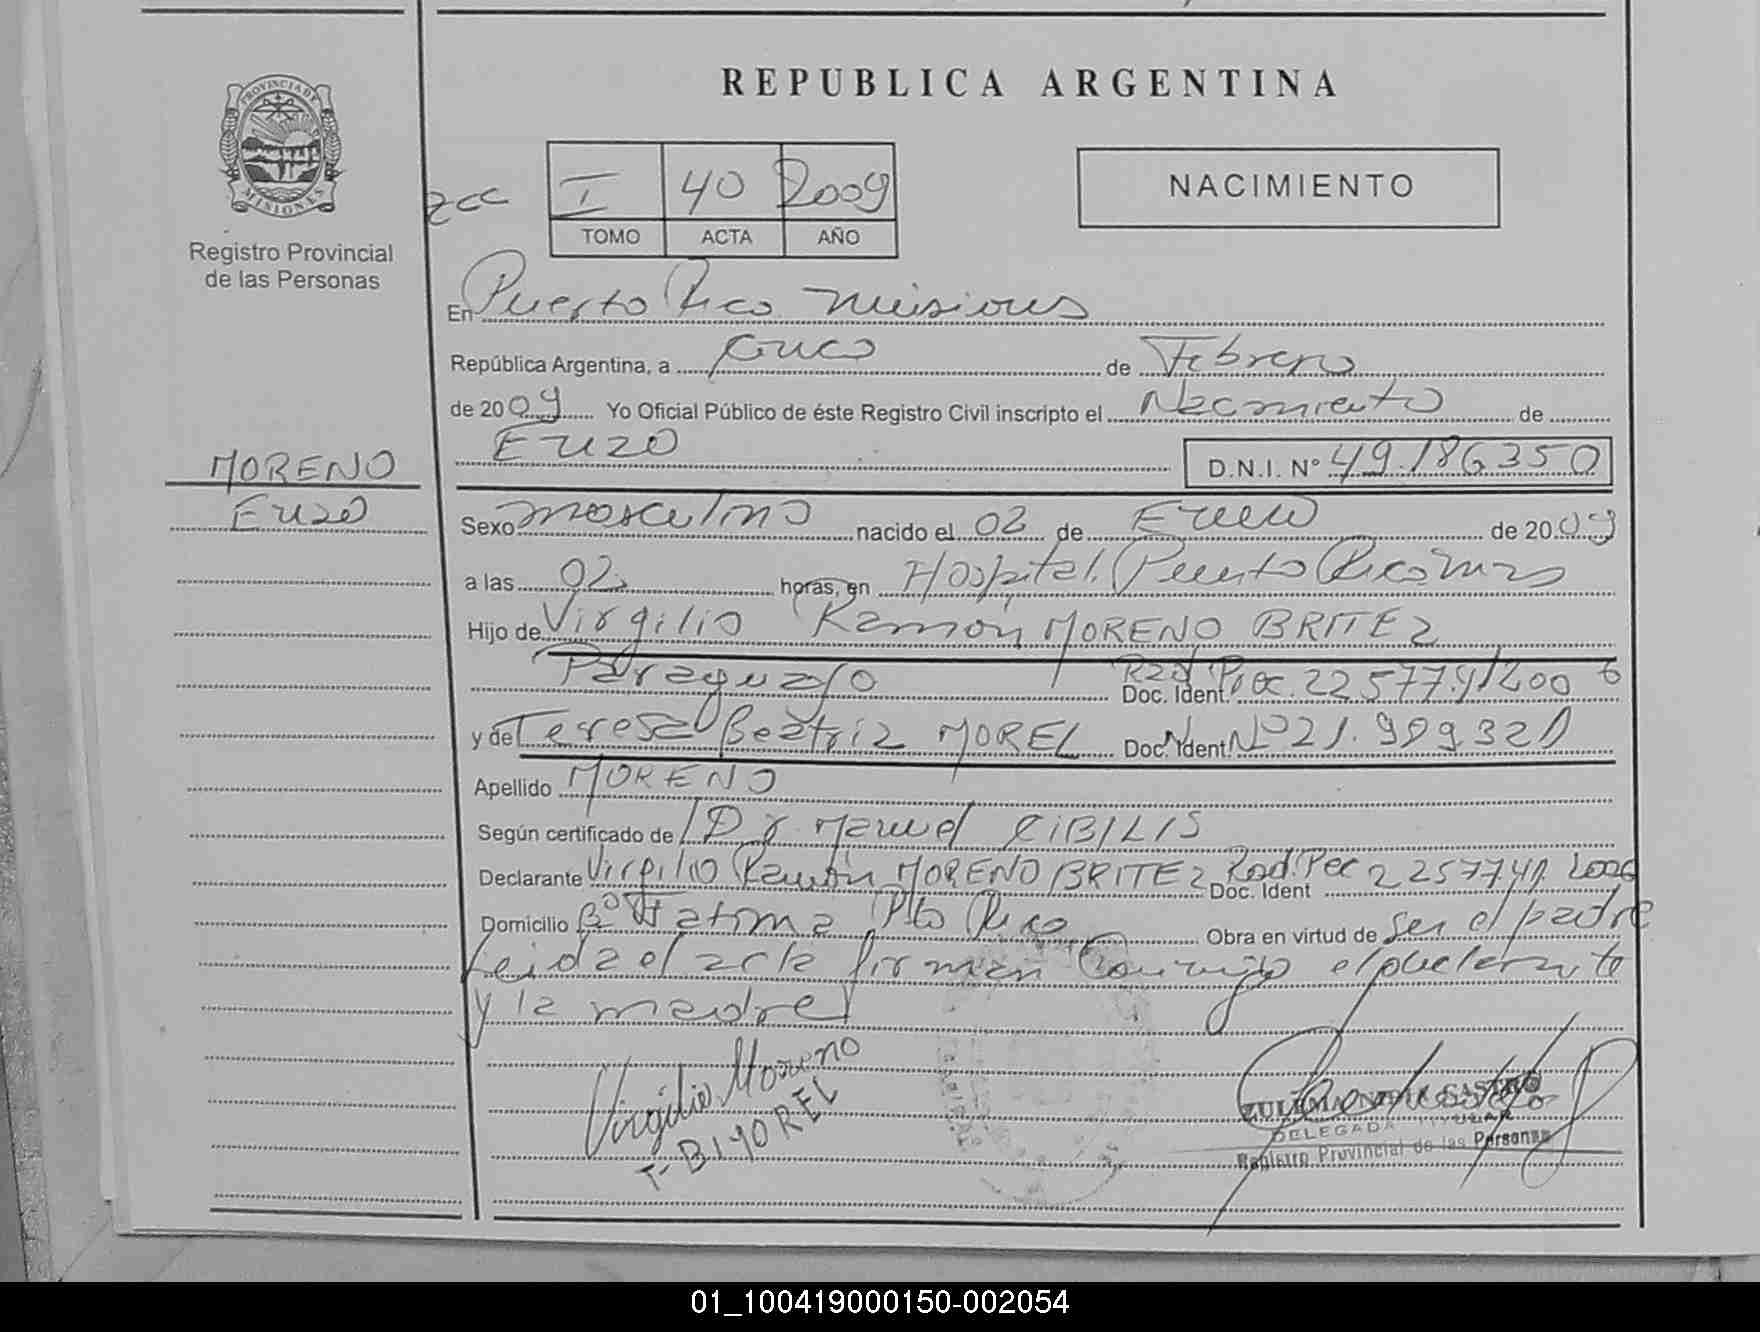 REPUBLICA ARGENTINA
PROVINCIA DE
MISIONES
Registro Provincial
de las Personas
NACIMIENTO
I 40 2009
TOMO ACTA AÑO
En Puerto Rico Misiones
República Argentina, a Cinco de Febrero
de 2009 Yo Oficial Público de éste Registro Civil inscripto el Nacimiento de
Enzo D.N.I. Nº 49.186350
MORENO
Enzo
Sexo masculino nacido el 02 de Enero de 2009
a las 02 horas, en Hospital Puerto Rico Mnes
Hijo de Virgilio Ramón MORENO BRITEZ
Paraguayo Doc. Ident. Rad. Prec. 225774/1/2006
y de Teresa Beatriz MOREL Doc. Ident. Nº 21.909321
Apellido MORENO
Según certificado de Dr. Manuel CIBILIS
Declarante Virgilio Ramón MORENO BRITEZ Doc. Ident Rad. Prec 225774/1 2006
Domicilio Bº Fatima Pto Rico Obra en virtud de ser el padre
Leida el acta firman Conmigo el declarante
y la madre
Virgilio Moreno
T-B MOREL
ZULEMA CASTRO
DELEGADA TITULAR
Registro Provincial de las Personas
01_100419000150-002054